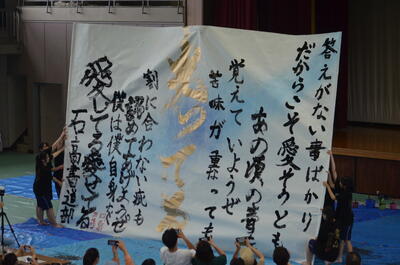 答えがない事ばかり
だからこそ愛そうとも
あの頃の青を
覚えていようぜ
苦味が重なっても
割に合わない疵も
認めてあげようぜ
僕は僕自身を
愛してる愛せてる
石高書道部